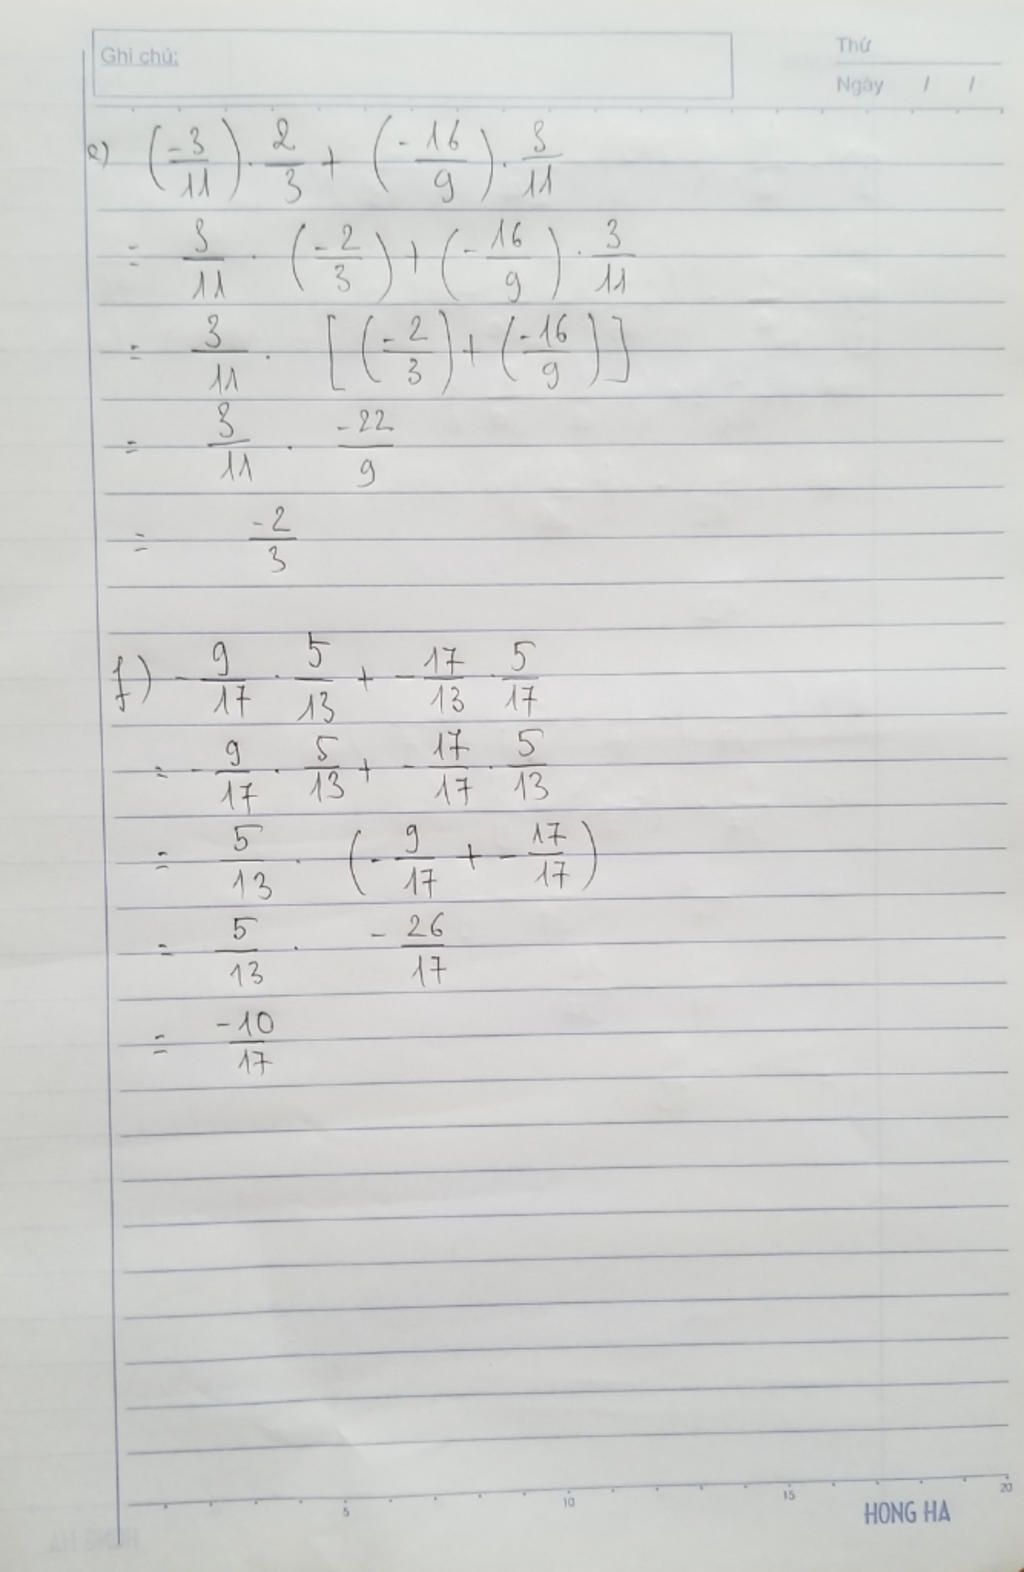 Ghi chú:
Thứ
Ngày / /
e) (-3/11) . 2/3 + (-16/9) . 3/11
= 3/11 . (-2/3) + (-16/9) . 3/11
= 3/11 . [(-2/3) + (-16/9)]
= 3/11 . -22/9
= -2/3
f) -9/17 . 5/13 + -17/13 . 5/17
= -9/17 . 5/13 + -17/17 . 5/13
= 5/13 . (-9/17 + -17/17)
= 5/13 . -26/17
= -10/17
5 10 15 20
HONG HA